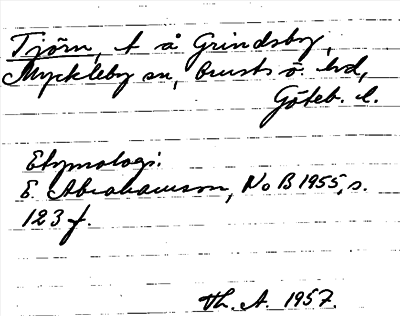 Tjörn, t å Grindsby,
Myckleby sn, Orusts ö. hd,
Göteb. l.
Etymologi.
E. Abrahamson, NoB 1955, s.
123 f.
Th. A. 1957.